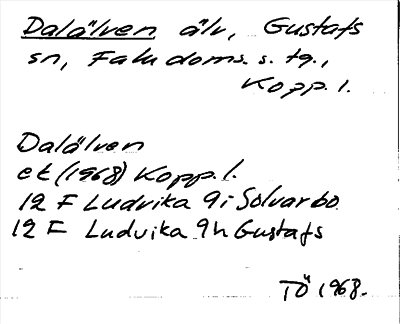 Dalälven älv, Gustafs
sn, Falu doms. s. tg.,
Kopp. l.
Dalälven
ek (1968) Kopp. l.
12 F Ludvika 9i Solvarbo
12 F Ludvika 9h Gustafs
TÖ 1968.